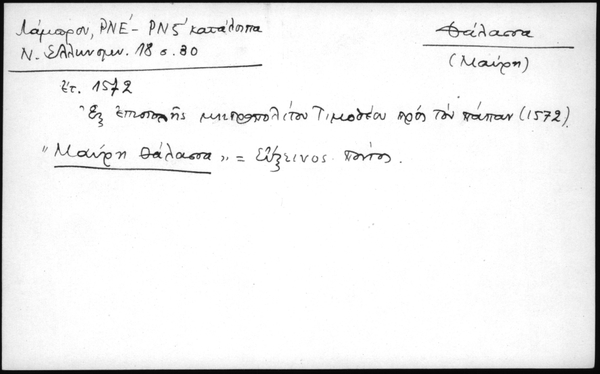 Λάμπρου, ΡΝΕ΄- ΡΝϚ΄ κατάλοιπα
Ν. Ἑλληνομν. 18 σ. 80
Θάλασσα
(Μαύρη)
ἔτ. 1572
Ἐξ ἐπιστολῆς μητροπολίτου Τιμοθέου πρὸς τὸν πάπαν (1572).
"Μαύρη θάλασσα" = Εὔξεινος πόντος.